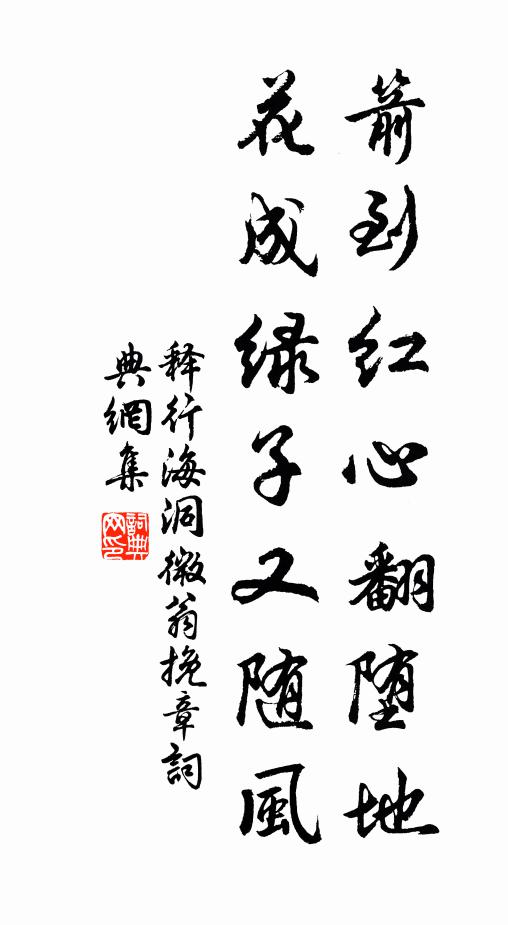 箭到红心翻堕地
花成绿子又随風
释行海洞微翁挽章詞
典網集
詞典
网印